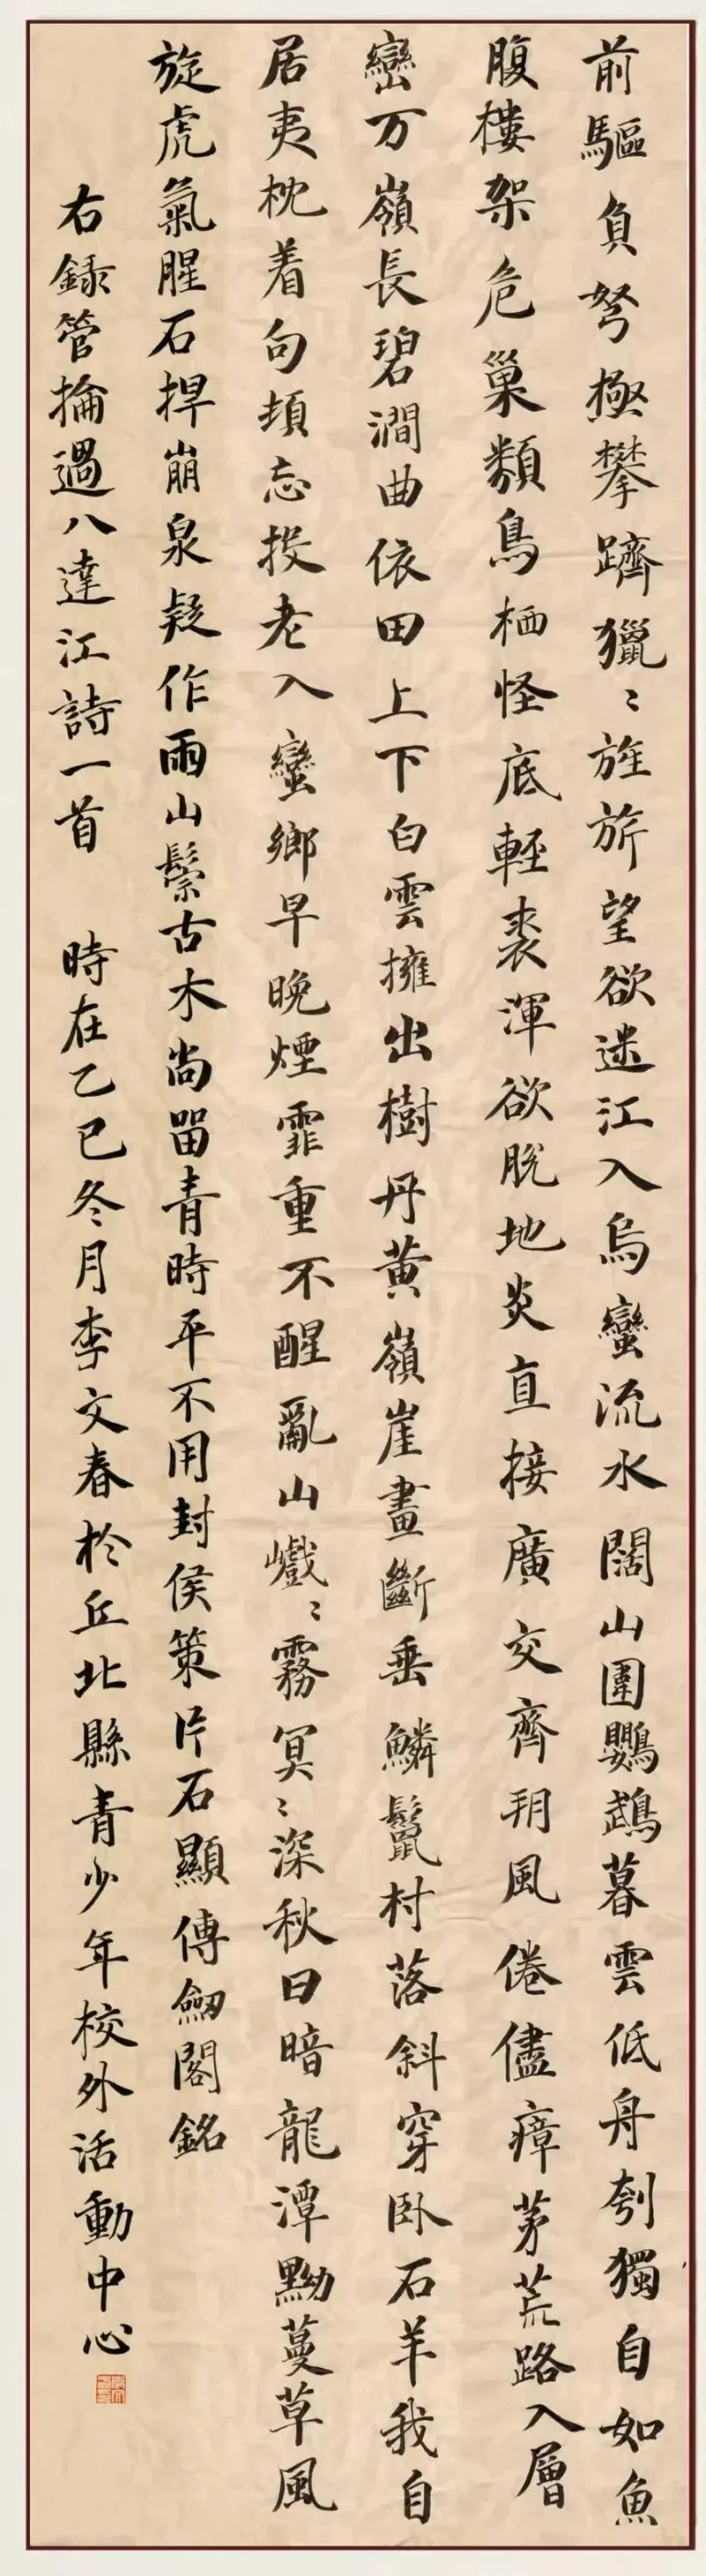 前驅負弩極攀躋獵〻旌旂望欲迷江入烏蠻流水闊山圍鸚鵡暮雲低舟刳獨自如魚
腹樓架危巢類鳥栖怪底輕裘渾欲脫地炎直接廣交齊朔風倦儘瘴茅荒路入層
巒万嶺長碧澗曲依田上下白雲擁出樹丹黃嶺崖畫斷垂鱗鬣村落斜穿卧石羊我自
居夷枕着句頓忘投老入蠻鄉早晚煙霏重不醒亂山巇〻霧冥〻深秋日暗龍潭黝蔓草風
旋虎氣腥石捍崩泉疑作雨山鬃古木尚留青時平不用封侯策片石顯傳劒閣銘
右録管掄過八達江詩一首 時在乙巳冬月李文春於丘北縣青少年校外活動中心